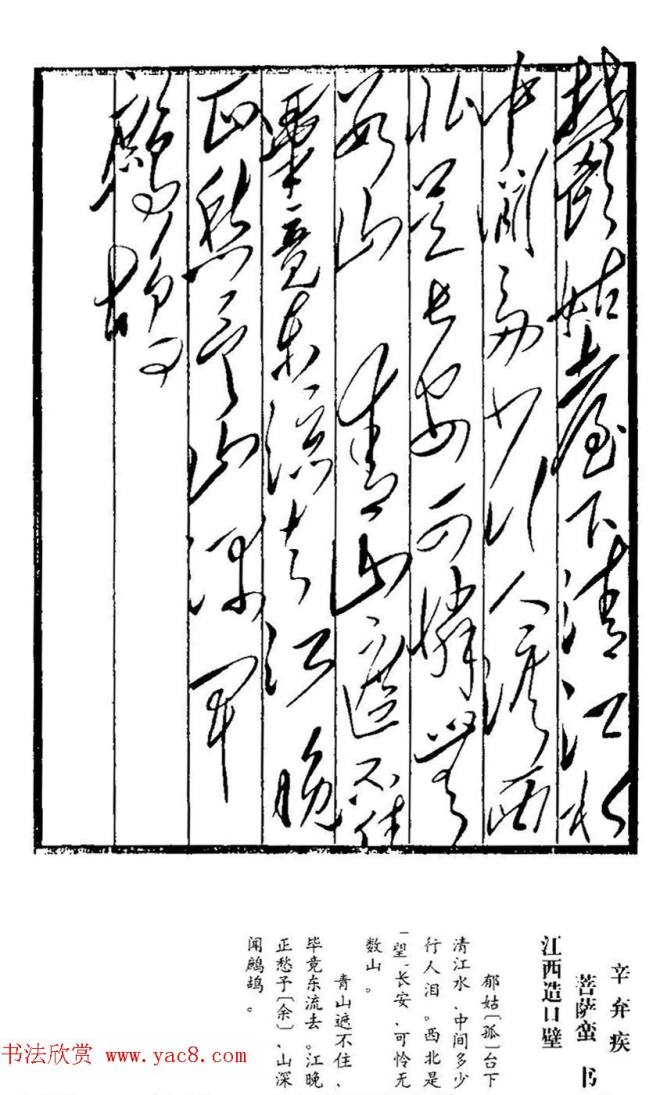 鬱姑臺下清江水
中間多少行人淚西
北是長安可憐無
数山 青山遮不住
畢竟東流去江晚
正愁予山深聞
鷓鴣
辛弃疾
菩萨蛮 书
江西造口壁
郁姑〔孤〕台下
清江水、中间多少
行人泪。西北是
〔望〕长安、可怜无
数山。
青山遮不住、
毕竟东流去。江晚
正愁予〔余〕、山深
闻鹧鸪。
书法欣赏 www.yac8.com